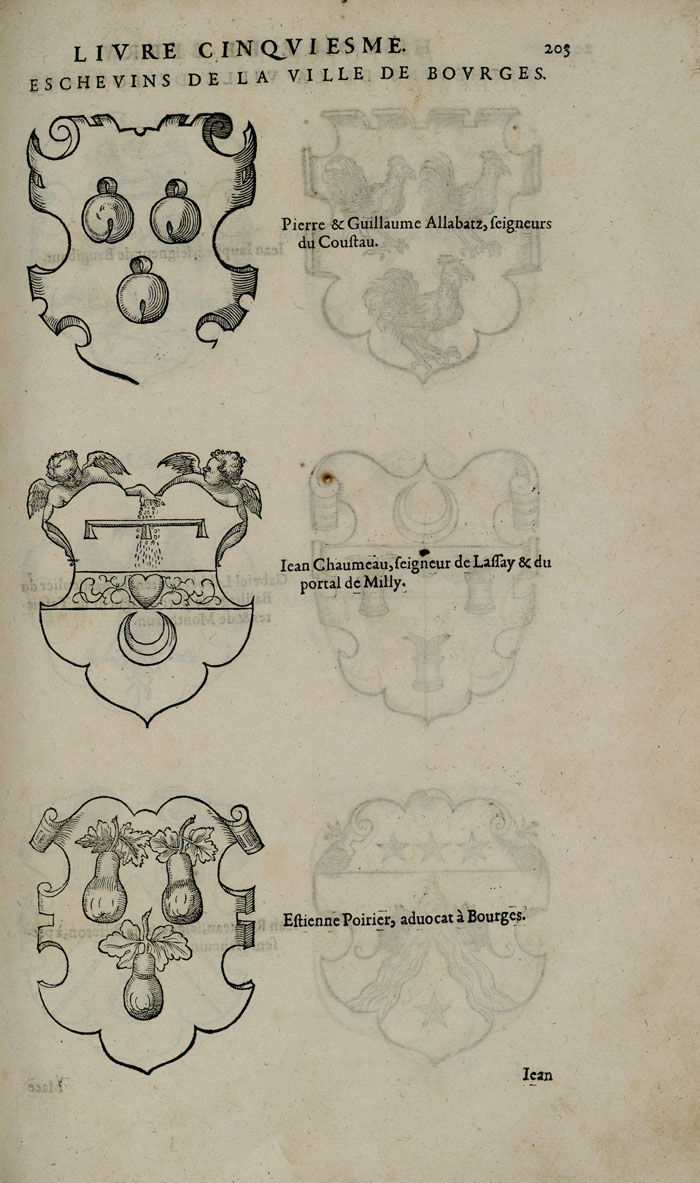 LIVRE CINQVIESME. 205
ESCHEVINS DE LA VILLE DE BOVRGES.
Pierre & Guillaume Allabatz, ſeigneurs
du Couſtau.
Iean Chaumeau, ſeigneur de Laſſay & du
portal de Milly.
Eſtienne Poirier, aduocat à Bourges.
Iean